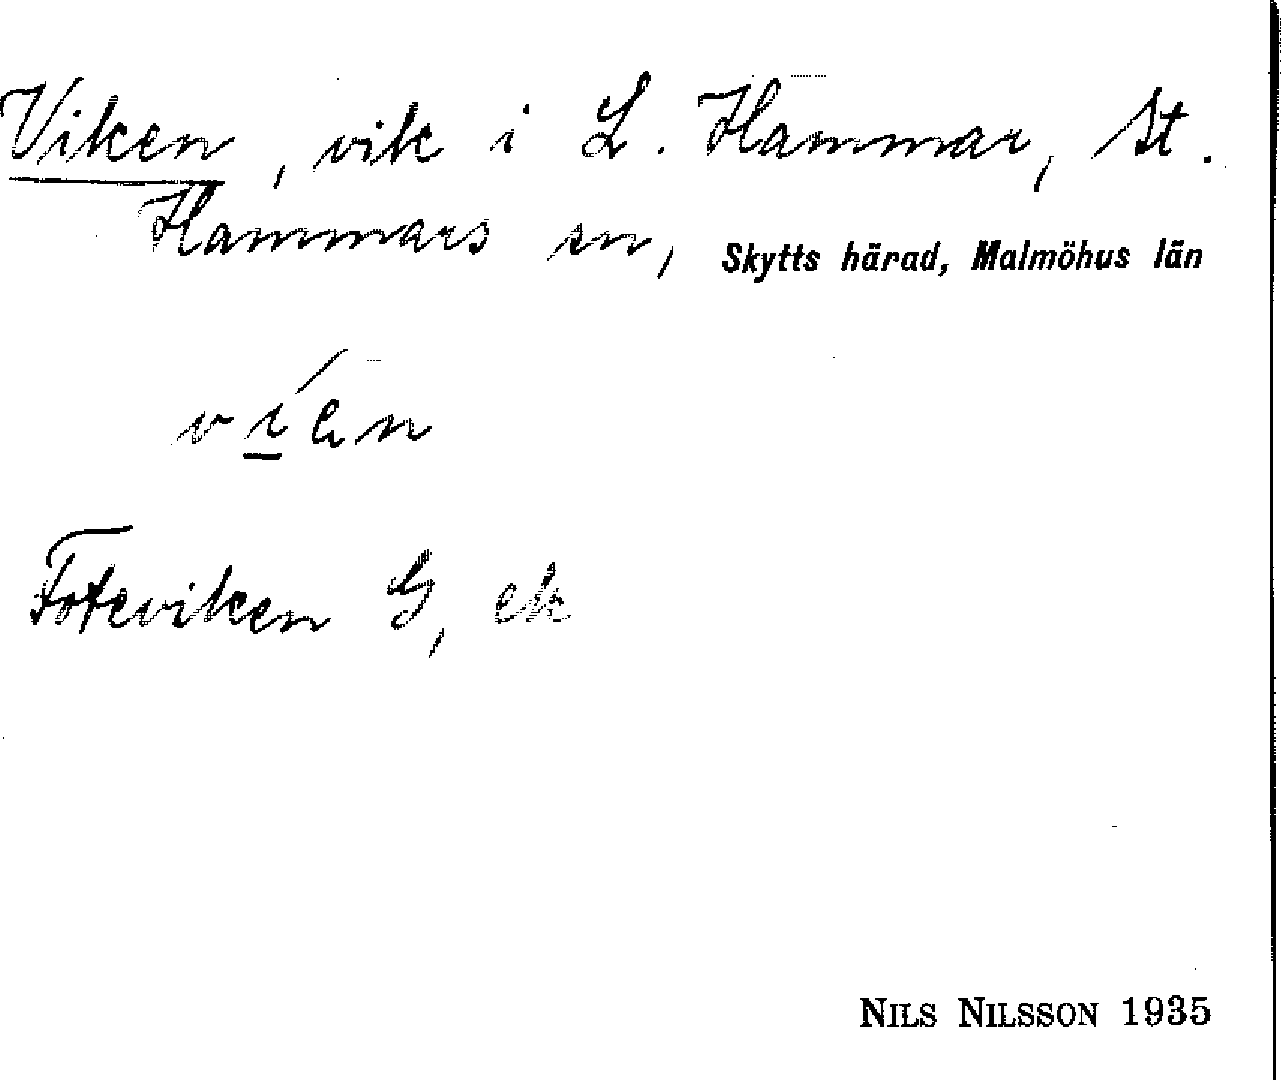 Viken, vik i L. Hammar, St.
Hammars sn, Skytts härad, Malmöhus län
Foteviken G, ek
NILS NILSSON 1935